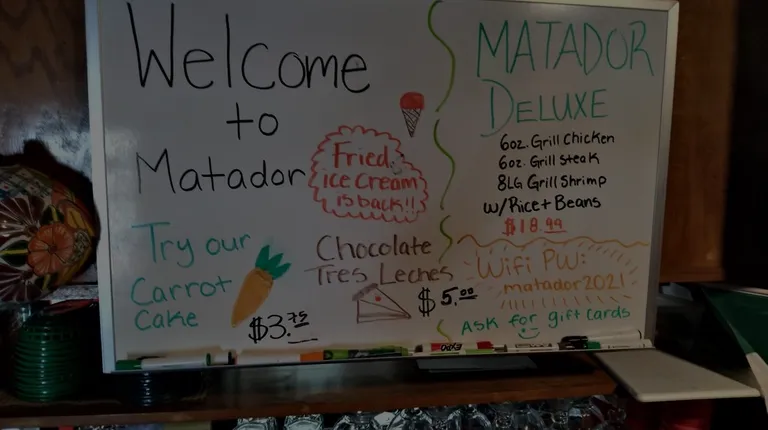 Welcome
to
Matador
Fried
ice cream
is back!!
Try our
Carrot
Cake
$3.75
Chocolate
Tres Leches
$5.00
MATADOR
DELUXE
6oz. Grill Chicken
6oz. Grill Steak
8LG Grill Shrimp
w/Rice+ Beans
$18.99
WiFi PW:
matador2021
ASK for gift cards
EXPO